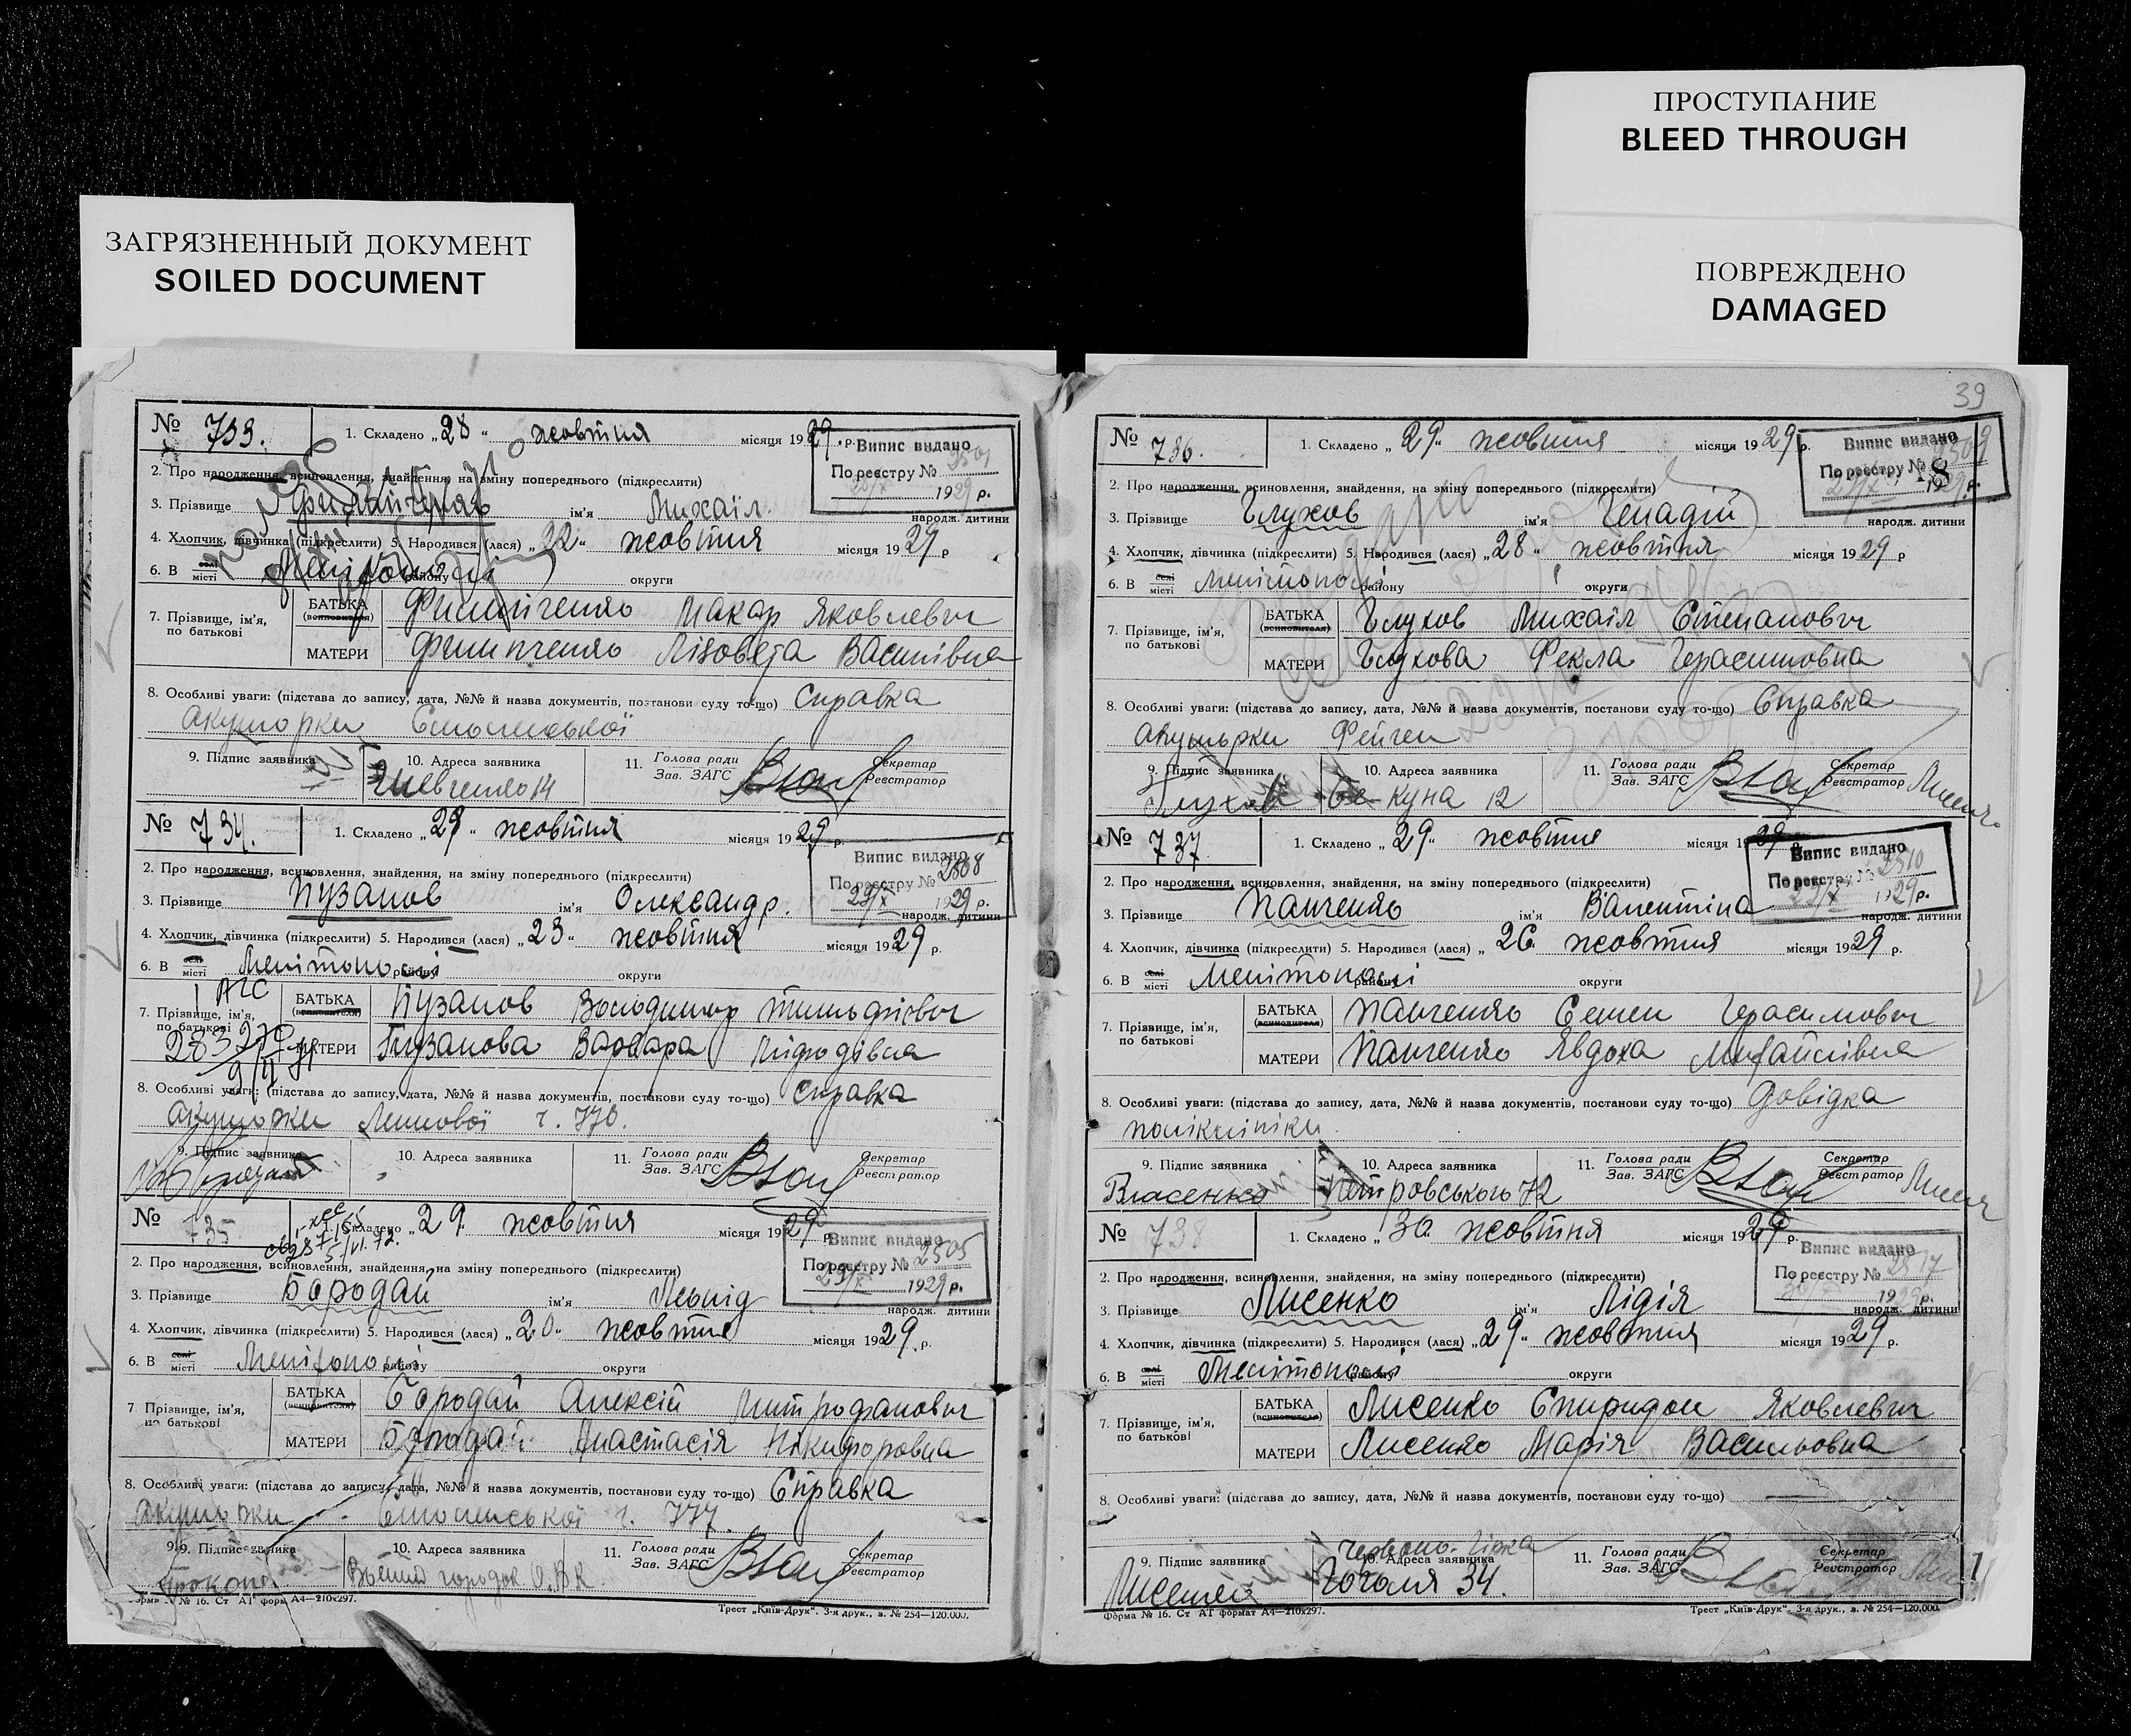 ПРОСТУПАНИЕ
BLEED THROUGH
ПОВРЕЖДЕНО
DAMAGED
ЗАГРЯЗНЕННЫЙ ДОКУМЕНТ
SOILED DOCUMENT
№ 733. 1. Складено „28“ жовтня місяця 1929 р.
Випис видано
По реєстру № 2501
1929 р.
2. Про народження, всиновлення, знайдення, на зміну попереднього (підкреслити)
3. Прізвище ім'я Михаіл народж. дитини
4. Хлопчик, дівчинка (підкреслити) 5. Народився (лася) „22“ жовтня місяця 1929 р
6. В селі місті району округи
7. Прізвище, ім'я, по батькові
БАТЬКА (всиновителя) Филипченко Макар Яковлевич
МАТЕРИ Филипченко Лізовета Василівна
8. Особливі уваги: (підстава до запису, дата, №№ й назва документів, постанови суду то-що) Справка
акушорки
9. Підпис заявника 10. Адреса заявника 11. Голова ради Зав. ЗАГС Секретар Реєстратор
Шевченко 14
№ 734. 1. Складено „29“ жовтня місяця 1929 р.
Випис видано
По реєстру № 2508
29/X 1929 р.
2. Про народження, всиновлення, знайдення, на зміну попереднього (підкреслити)
3. Прізвище Пузанов ім'я Олександр. народж. дитини
4. Хлопчик, дівчинка (підкреслити) 5. Народився (лася) „23“ жовтня місяця 1929 р.
6. В селі місті Мелітополі району округи
7. Прізвище, ім'я, по батькові
БАТЬКА (всиновителя) Пузанов Володимир
МАТЕРИ Пузанова Варвара
8. Особливі уваги: (підстава до запису, дата, №№ й назва документів, постанови суду то-що) Справка
акушорки ч. 770.
9. Підпис заявника 10. Адреса заявника 11. Голова ради Зав. ЗАГС Секретар Реєстратор
№ 735. 1. Складено „29“ жовтня місяця 1929 р.
Випис видано
По реєстру № 2505
29/X 1929 р.
2. Про народження, всиновлення, знайдення, на зміну попереднього (підкреслити)
3. Прізвище Бородай ім'я Леонід народж. дитини
4. Хлопчик, дівчинка (підкреслити) 5. Народився (лася) „20“ жовтня місяця 1929 р.
6. В селі місті Мелітополі району округи
7. Прізвище, ім'я, по батькові
БАТЬКА (всиновителя) Бородай Алексій Митрофанович
МАТЕРИ Бородай Анастасія Нікифоровна
8. Особливі уваги: (підстава до запису, дата, №№ й назва документів, постанови суду то-що) Справка
акушорки ч. 777.
9. Підпис заявника 10. Адреса заявника 11. Голова ради Зав. ЗАГС Секретар Реєстратор
городок
№ 16. Ст АТ форм А4—210х297. Трест „Київ-Друк“. 3-я друк., з. № 254—120.000.
39
№ 736. 1. Складено „29“ жовтня місяця 1929 р.
Випис видано
По реєстру № 2509
18
2. Про народження, всиновлення, знайдення, на зміну попереднього (підкреслити)
3. Прізвище Глухов ім'я Генадій народж. дитини
4. Хлопчик, дівчинка (підкреслити) 5. Народився (лася) „28“ жовтня місяця 1929 р
6. В селі місті Мелітополі району округи
7. Прізвище, ім'я, по батькові
БАТЬКА (всиновителя) Глухов Михаіл Степанович
МАТЕРИ Глухова Фекла Герасимовна
8. Особливі уваги: (підстава до запису, дата, №№ й назва документів, постанови суду то-що) Справка
акушорки
9. Підпис заявника 10. Адреса заявника 11. Голова ради Зав. ЗАГС Секретар Реєстратор
Глухов 12
№ 737. 1. Складено „29“ жовтня місяця 1929
Випис видано
По реєстру № 2510
1929 р.
2. Про народження, всиновлення, знайдення, на зміну попереднього (підкреслити)
3. Прізвище Панченко ім'я Валентіна народж. дитини
4. Хлопчик, дівчинка (підкреслити) 5. Народився (лася) „26 жовтня місяця 1929 р.
6. В селі місті Мелітополі району округи
7. Прізвище, ім'я, по батькові
БАТЬКА (всиновителя) Панченко Семен Герасимович
МАТЕРИ Панченко Явдоха Михайлівна
8. Особливі уваги: (підстава до запису, дата, №№ й назва документів, постанови суду то-що) Довідка
полікліники.
9. Підпис заявника 10. Адреса заявника 11. Голова ради Зав. ЗАГС Секретар Реєстратор
Власенко Петровського 72
№ 738 1. Складено „30 жовтня місяця 1929 р.
Випис видано
По реєстру № 2517
1929 р.
2. Про народження, всиновлення, знайдення, на зміну попереднього (підкреслити)
3. Прізвище Лисенко ім'я Лідія народж. дитини
4. Хлопчик, дівчинка (підкреслити) 5. Народився (лася) „29“ жовтня місяця 1929 р.
6. В селі місті Мелітополі району округи
7. Прізвище, ім'я, по батькові
БАТЬКА (всиновителя) Лисенко Спиридон Яковлевич
МАТЕРИ Лисенко Марія Васильовна
8. Особливі уваги: (підстава до запису, дата, №№ й назва документів, постанови суду то-що)
9. Підпис заявника 10. Адреса заявника 11. Голова ради Зав. ЗАГС Секретар Реєстратор
Червоно-Гірка
Гоголя 34.
Форма № 16. Ст АТ формат А4—210х297. Трест „Київ-Друк“. 3-я друк., з. № 254—120.000.